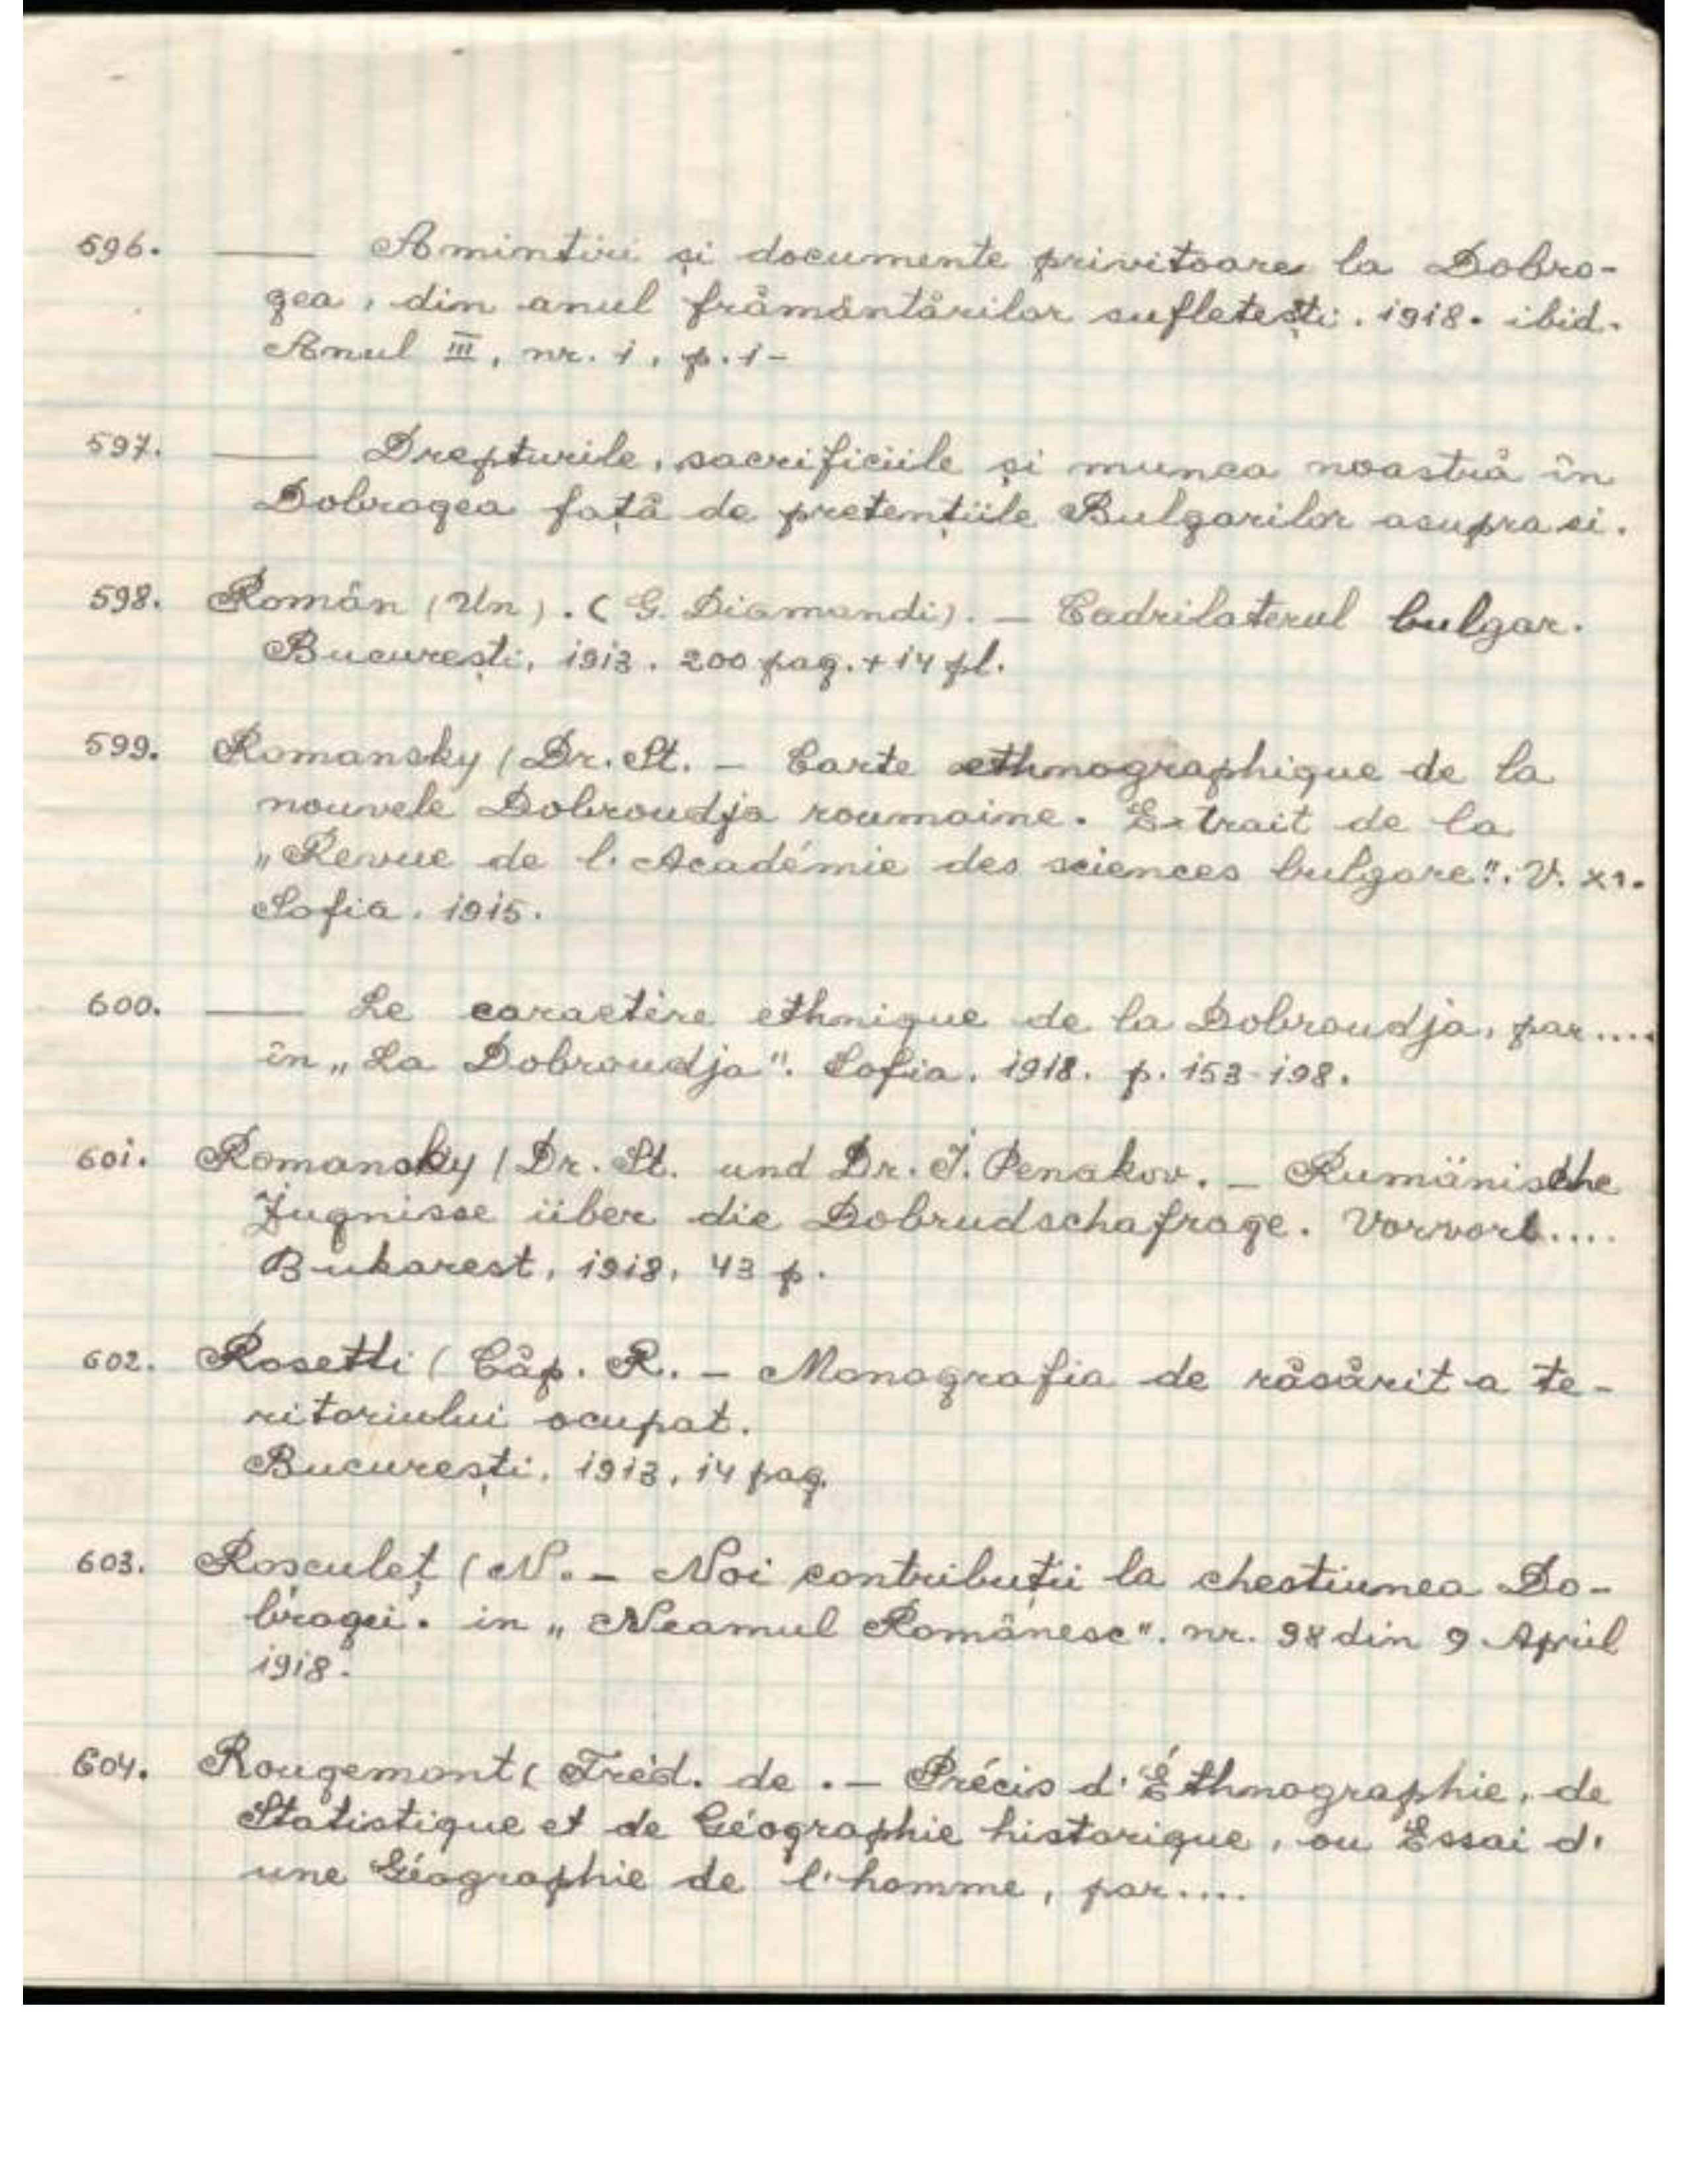 596. —— Amintiri și documente privitoare la Dobro-
gea, din anul frământărilor sufletești. 1918. ibid.
Anul III, nr. 1, p. 1-
597. —— Drepturile, sacrificiile și munca noastră în
Dobrogea față de pretențiile Bulgarilor asupra ei.
598. Român (Un). (G. Diamandi). — Cadrilaterul bulgar.
București, 1913. 200 pag. + 14 pl.
599. Romansky (Dr. St. — Carte ethnographique de la
nouvele Dobroudja roumaine. Extrait de la
„Revue de l'Académie des sciences bulgare". V. XI.
Sofia. 1915.
600. —— Le caractère ethnique de la Dobroudja, par....
în „La Dobroudja". Sofia. 1918. p. 153-198.
601. Romansky (Dr. St. und Dr. I. Penakov. — Rumänische
Zugnisse über die Dobrudschafrage. Vorvort....
Bukarest, 1918, 43 p.
602. Rosetti (Căp. R. — Monografia de răsărit a te-
ritoriului ocupat.
București, 1913, 14 pag.
603. Rosculeț (N. — Noi contribuții la chestiunea Do-
brogei. in „Neamul Românesc". nr. 98 din 9 April
1918.
604. Rougemont (Fréd. de. — Précis d'Éthnographie, de
Statistique et de Géographie historique, ou Essai d'
une Géographie de l'homme, par....